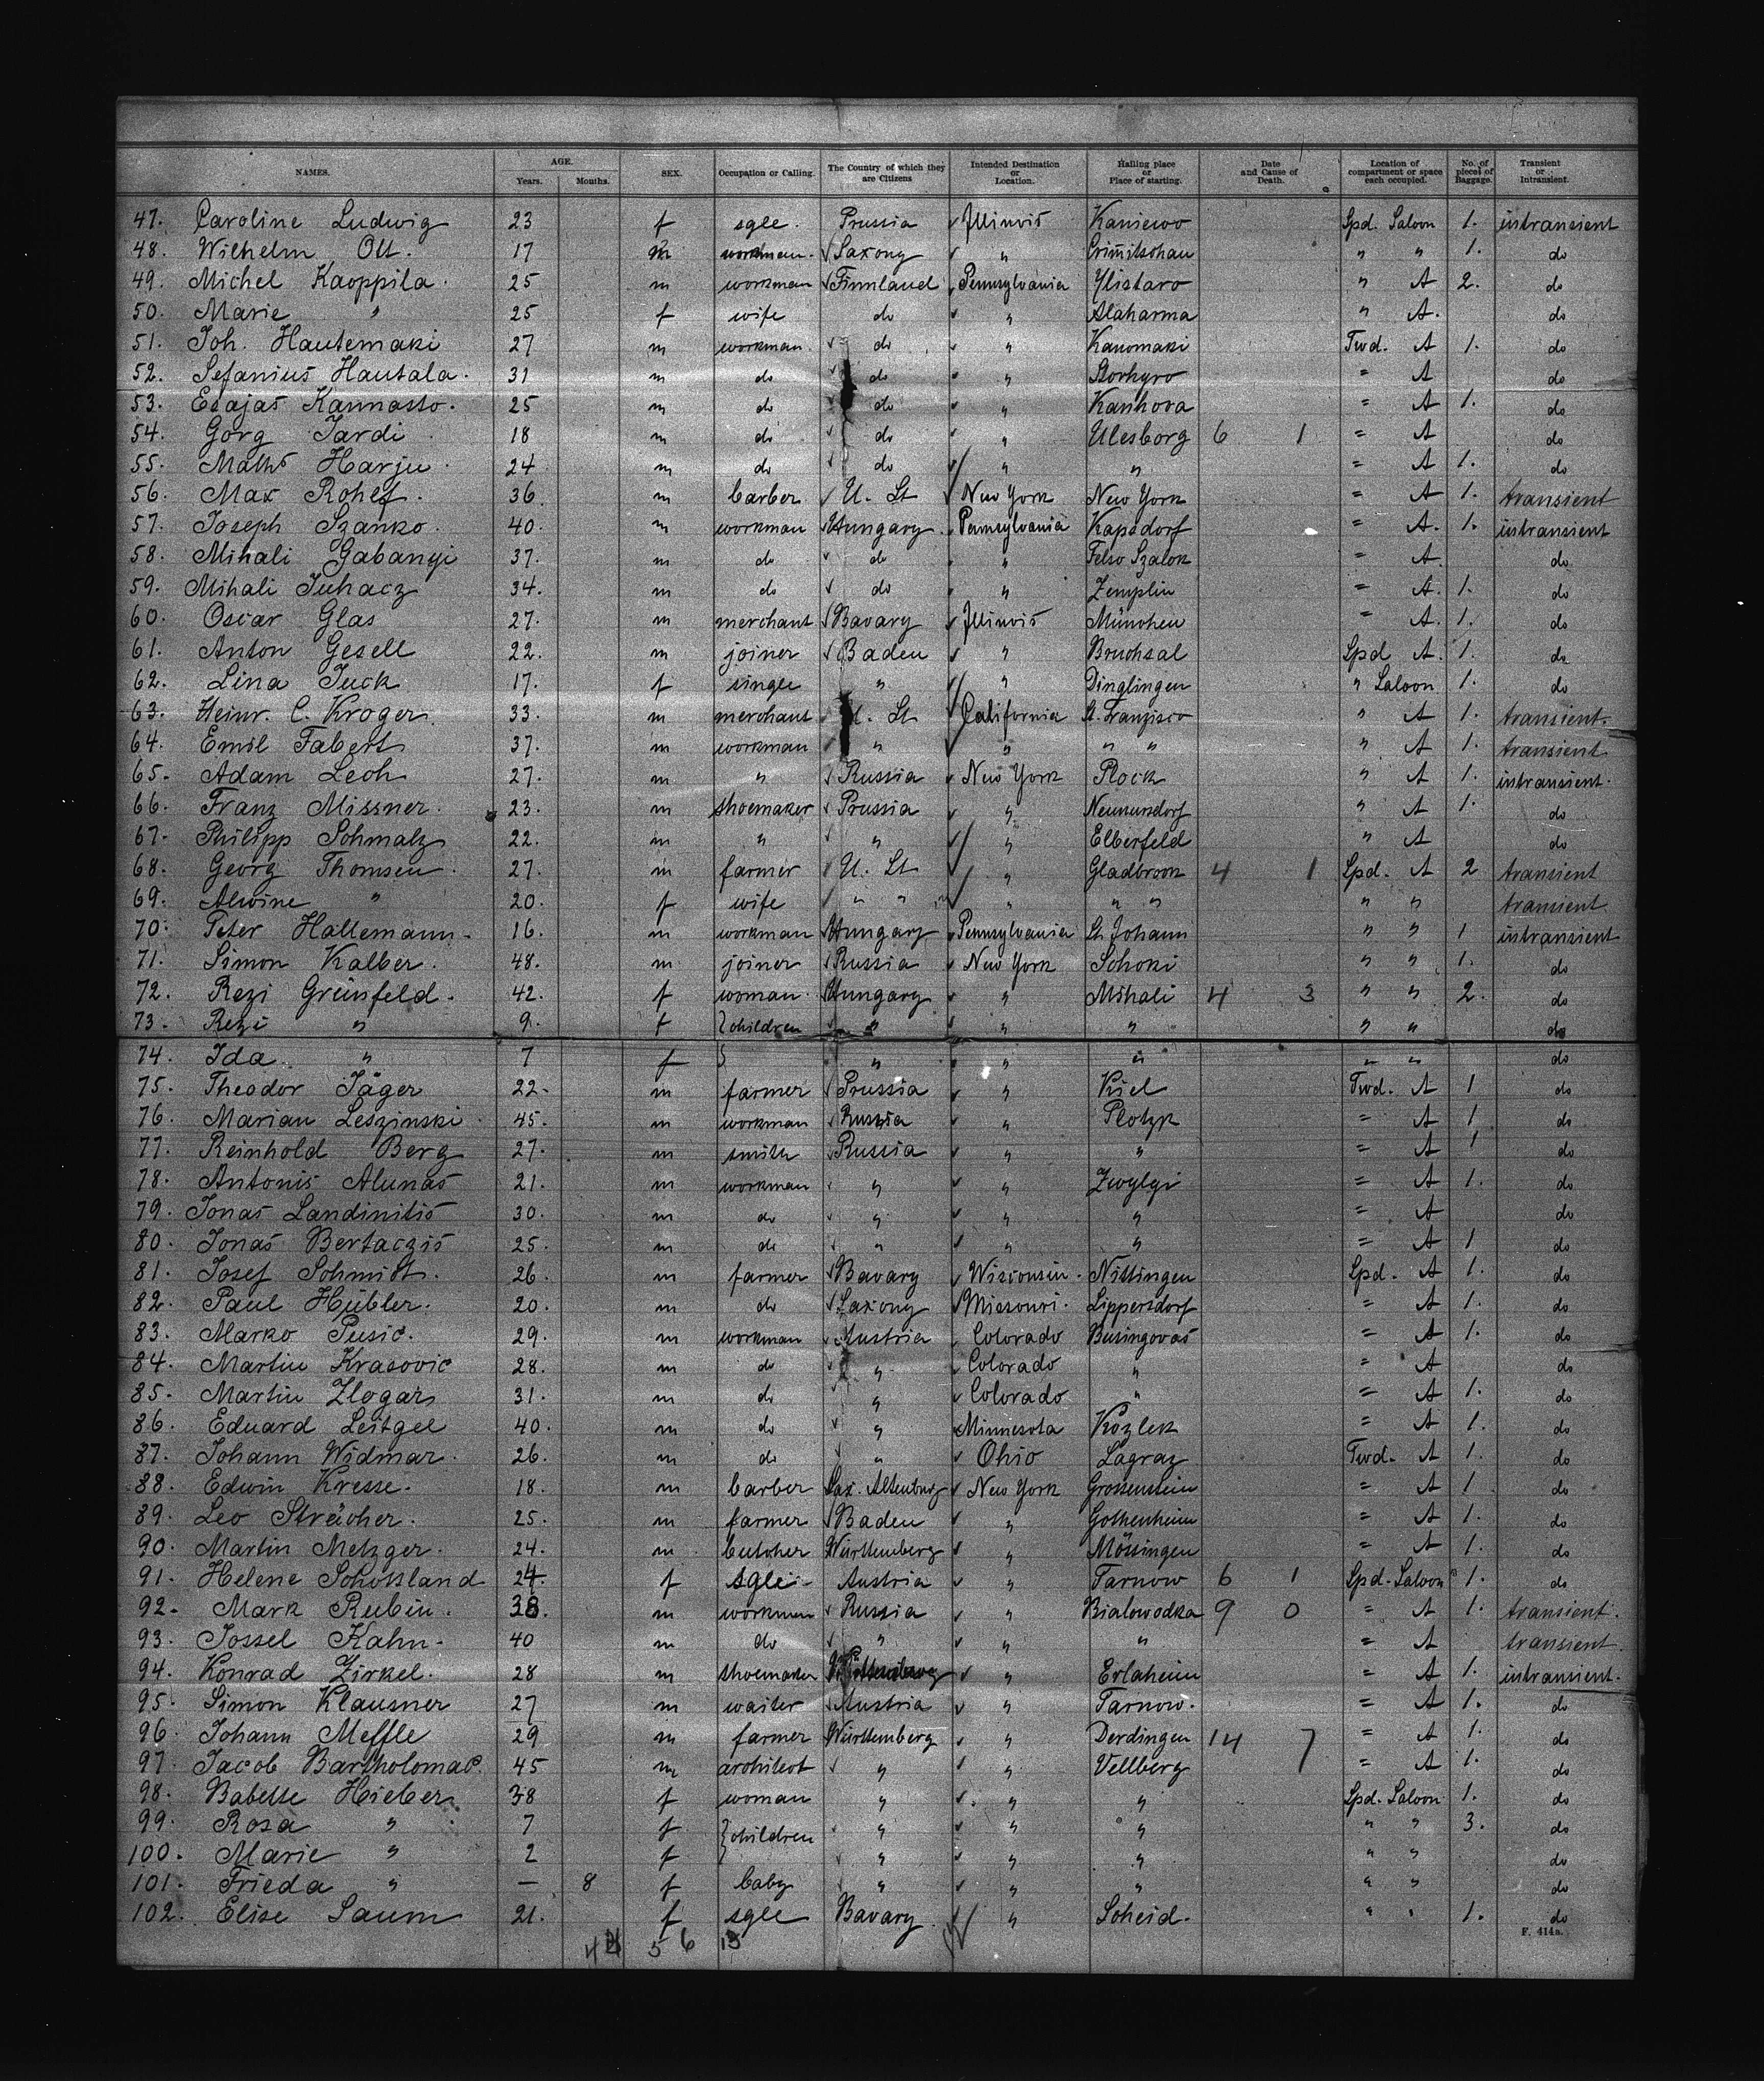 NAMES. AGE. Years. Months. SEX. Occupation or Calling. The Country of which they are Citizens Intended Destination or Location. Hailing place or Place of starting. Date and Cause of Death. Location of compartment or space each occupied. No. of pieces of Baggage. Transient or Intransient.
47. Caroline Ludwig 23 f sgle. Prussia Illinois Kaniewo Spd. Saloon 1. intransient
48. Wilhelm Ott. 17 m workman. Saxony " Crimitschau " " 1. do
49. Michel Kaoppila. 25 m workman Finnland Pennsylvania Ylistaro " A 2. do
50. Marie " 25 f wife do " Alaharma " A. do
51. Joh. Hautemaki 27 m workman. do " Kanomaki Fwd. A 1. do
52. Sefanius Hautala. 31 m do do " Storkyro = A do
53. Esajas Kannasto. 25 m do do " Kanhova = A 1. do
54. Görg Jardi 18 m do do " Ulesborg 6 1 = A do
55. Maths Harju. 24 m do do " " = A 1. do
56. Max Rohef. 36 m barber U. St New York New York = A 1. transient
57. Joseph Szanko. 40. m workman Hungary. Pennsylvania Kapsdorf = A. 1. intransient
58. Mihali Gabanyi 37. m do do " Felso Szalok = A do.
59. Mihali Juhacz 34. m do do " Zemplin = A. 1. do
60. Oscar Glas 27. m merchant Bavary Illinois München = A. 1. do
61. Anton Gesell 22. m joiner Baden " Bruchsal Spd A. 1. do
62. Lina Juck 17. f single " " Dinglingen " Saloon 1. do
63. Heinr. C. Kroger. 33. m merchant U. St California St. Franzisco " A 1. transient.
64. Emil Fabert 37. m workman " " " " " A 1. transient
65. Adam Lech 27. m " Russia New York Plock " A 1. intransient.
66. Franz Missner. 23. m shoemaker Prussia " " A 1. do
67. Philipp Schmalz 22. m " " " Elberfeld " A do
68. Georg Thomsen. 27. m farmer U. St " Gladbrook 4 1 Spd. A 2 transient
69. Alwine " 20. f wife " " " " " " " transient
70. Peter Hallemann. 16. m workman Hungary Pennsylvania St. Johann " " 1 intransient
71. Simon Kalber. 48. m joiner Russia New York Schoki " " 1. do
72. Rezi Grünfeld. 42. f woman. Hungary " Mihali 4 3 " " 2. do
73. Rezi " 9. f } children " " " " " do
74. Ida " 7 f " " " " " do
75. Theodor Jäger 22. m farmer Prussia " Kiel Fwd. A 1 do
76. Marian Leszinski. 45. m workman Russia " Plotzk = A 1 do
77. Reinhold Berg 27. m smith Russia " " = A 1 do
78. Antonis Alunas 21. m workman " " Zwylgi = A 1. do
79. Jonas Landinitis 30. m do " " " = A do
80. Jonas Bertaczis 25. m do " " " = A 1 do
81. Josef Schmidt. 26. m farmer Bavary Wisconsin. Nittingen Spd. A 1. do
82. Paul Hübler. 20. m do Saxony Missouri. Lippersdorf = A 1. do
83. Marko Pusic. 29. m workman Austria Colorado Busingovas = A 1. do
84. Martin Krasovic 28. m do " Colorado " = A do
85. Martin Zlogar 31. m do " Colorado " = A 1. do
86. Eduard Leitgel 40. m do " Minnesota Kozlek = A 1. do
87. Johann Widmar. 26. m do " Ohio Lagraz Fwd. A 1. do
88. Edwin Kresse. 18. m barber Sax. Altenburg New York Grossenstein = A 1 do
89. Leo Streicher. 25. m farmer Baden " Gottenheim = A 1. do
90. Martin Metzger. 24. m butcher Württemberg " Mössingen = A 1. do
91. Helene Schossland 24. f sgle. Austria " Tarnow 6 1 Spd. Saloon 1. do
92. Mark Rubin. 38. m workman Russia " Bialowodka 9 0 = A 1. transient.
93. Jossel Kahn. 40 m do " " " = A transient.
94. Konrad Zirkel. 28 m shoemaker Württemberg " Erlaheim = A 1. intransient.
95. Simon Klausner 27 m waiter Austria " Tarnow. = A 1. do
96. Johann Meffle 29 m farmer Württemberg " Derdingen 14 7 = A 1. do
97. Jacob Bartholomae. 45 m architect " " Vellberg = A 1. do
98. Babette Hieber 38 f woman " " " Spd. Saloon 1. do
99. Rosa " 7 f } children " " " " " 3. do
100. Marie " 2 f " " " " " do
101. Frieda " — 8 f baby " " " " " do
102. Elise Saum 21. f sgle Bavary " Scheid. " " 1. do
5 6 13
F. 414a.